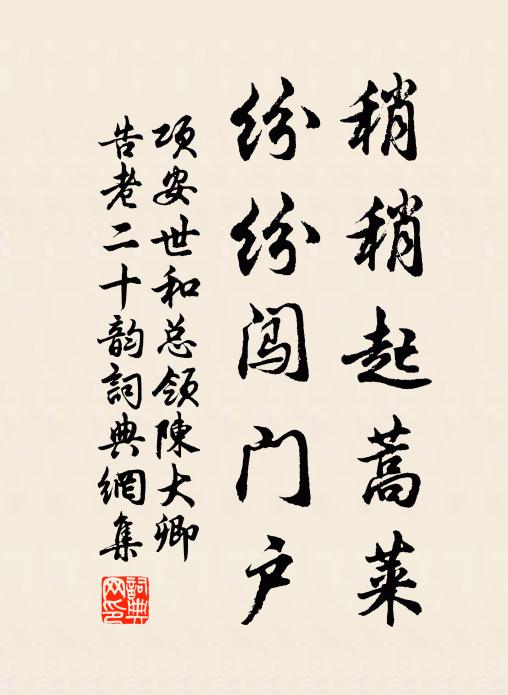 稍稍起蒿莱
纷纷闯门户
项安世和总领陳大卿
告老二十韵詞典網集
詞典网印